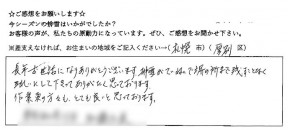 ☆ご感想をお願いします☆
今シーズンの排雪はいかがでしたか?
お客様の声が、私たちの原動力になっています。ぜひ、ご感想をお聞かせ下さい。
※差支えなければ、お住まいの地域をご記入ください→(札幌 市)(厚別 区)
長年お世話になりありがとうございます。
してTさってありがたく思っております。
作業員の方々も、とても良いと思っております。